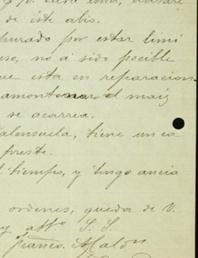 de éste año.
purado por estar limi
no a sido pocible
que esta en reparacion
amontonar el maiz
se acarrea.
alensuela, tiene un ca
preste.
tiempo, y tengo ancia
ordenes, quedo de V.
y atto S. S.